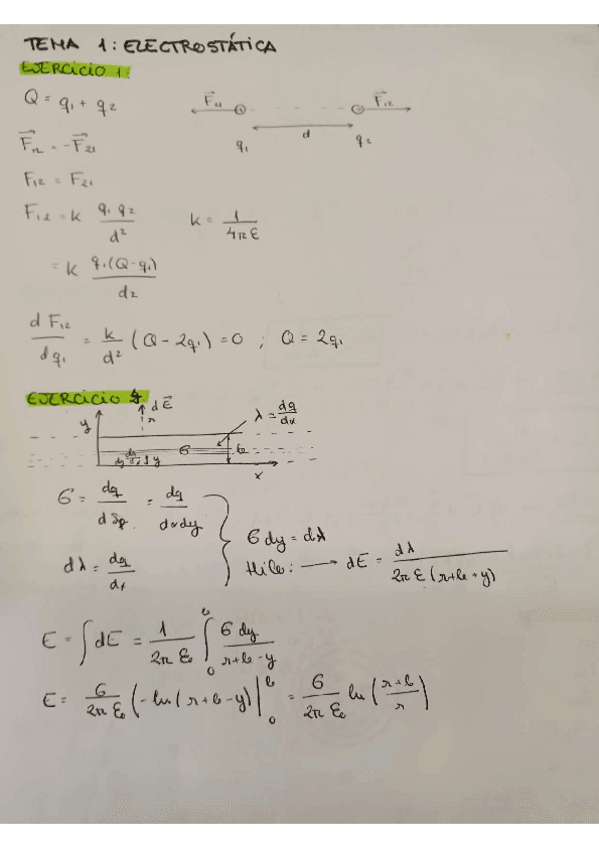 TEMA 1: ELECTROSTÁTICA
EJERCICIO 1:
Q = q₁ + q₂
F⃗₂₁ F⃗₁₂
d
q₁ q₂
F⃗₁₂ = -F⃗₂₁
F₁₂ = F₂₁
F₁₂ = k q₁ q₂ / d² k = 1 / 4π ε
= k q₁(Q-q₁) / d²
d F₁₂ / dq₁ = k / d² (Q - 2q₁) = 0 ; Q = 2q₁
EJERCICIO
dE⃗
r
y λ = dq / dx
σ b
y
x
σ = dq / dSp. = dq / dxdy
σ dy = dλ
dλ = dq / dx
Hilo: → dE = dλ / 2π ε (r+b+y)
E = ∫ dE = 1 / 2π ε₀ ∫₀ᵇ σ dy / r+b-y
E = σ / 2π ε₀ (-ln(r+b-y)|₀ᵇ = σ / 2π ε₀ ln (r+b / r)